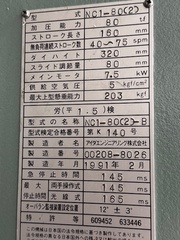 型式 NC1-80(2)
加圧能力 80 tf
ストローク長さ 160 mm
無負荷連続ストローク数 40〜75 spm
ダイハイト 320 mm
スライド調節 80 mm
メインモータ 7.5 kW
供給空気圧 5 kgf/cm²
最大上型懸垂能力 203 kgf
労(平1.5)検
型式の名称 NC1-80(2)-B
型式検定合格番号 第K140号
製造者 アイダエンジニアリング株式会社
製造番号 00208-8026
製造年月 1991年2月
急停止時間 145 ms
最大停止時間 両手操作式 145 ms
光線式 165 ms
オーバラン監視装置設定位置 12° ± 3°
特許 609452 633446